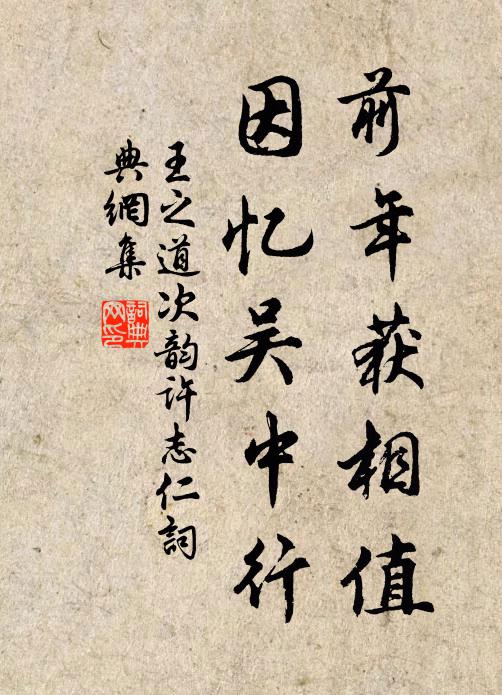 前年获相值
因忆吴中行
王之道次韵许志仁詞
典網集
詞典网印